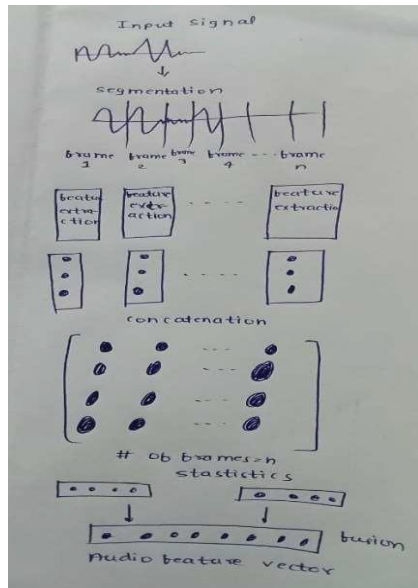 Input signal
segmentation
frame 1 frame 2 frame 3 frame 4 ---- frame n
feature extra-ction feature extr-action ---- feature extraction
concatenation
# of frames=n
stastictics
fusion
Audio feature vector